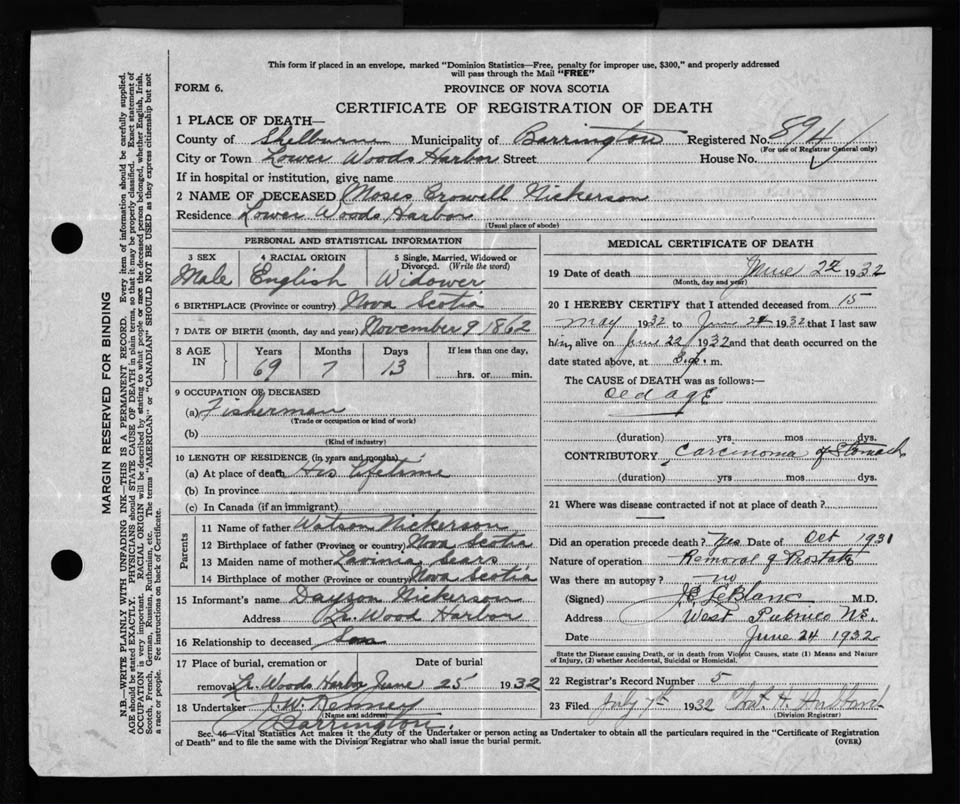 This form if placed in an envelope, marked "Dominion Statistics—Free, penalty for improper use, $300," and properly addressed
will pass through the Mail "FREE"
FORM 6.
PROVINCE OF NOVA SCOTIA
CERTIFICATE OF REGISTRATION OF DEATH
1 PLACE OF DEATH—
County of Shelburne Municipality of Barrington Registered No. 894
(For use of Registrar General only)
City or Town Lower Woods Harbor Street House No.
If in hospital or institution, give name
2 NAME OF DECEASED Moses Crowell Nickerson
Residence Lower Woods Harbor
(Usual place of abode)
PERSONAL AND STATISTICAL INFORMATION
3 SEX 4 RACIAL ORIGIN 5 Single, Married, Widowed or
Divorced. (Write the word)
Male English Widower
6 BIRTHPLACE (Province or country) Nova Scotia
7 DATE OF BIRTH (month, day and year) November 9 1862
8 AGE IN Years Months Days If less than one day,
69 7 13 hrs. or min.
9 OCCUPATION OF DECEASED
(a) Fisherman
(Trade or occupation or kind of work)
(b)
(Kind of industry)
10 LENGTH OF RESIDENCE (in years and months)
(a) At place of death His lifetime
(b) In province
(c) In Canada (if an immigrant)
Parents
11 Name of father Watson Nickerson
12 Birthplace of father (Province or country) Nova Scotia
13 Maiden name of mother Lavinia Sears
14 Birthplace of mother (Province or country) Nova Scotia
15 Informant's name Nickerson
Address Lr. Wood Harbor
16 Relationship to deceased Son
17 Place of burial, cremation or Date of burial
removal Lr. Woods Harbor June 25 1932
18 Undertaker J. W. Kenney
(Name and address)
Barrington.
MEDICAL CERTIFICATE OF DEATH
19 Date of death June 22 1932
(Month, day and year)
20 I HEREBY CERTIFY that I attended deceased from 15
May 1932 to June 24 1932 that I last saw
him alive on June 22 1932 and that death occurred on the
date stated above, at m.
The CAUSE of DEATH was as follows:—
Old age
(duration) yrs. mos. dys.
CONTRIBUTORY Carcinoma of Stomach
(duration) yrs. mos. dys.
21 Where was disease contracted if not at place of death?
Did an operation precede death? Yes Date of Oct 1931
Nature of operation Removal of Prostate
Was there an autopsy? no
(Signed) J E LeBlanc M.D.
Address West Pubnico NS.
Date June 24 1932
State the Disease causing Death, or in death from Violent Causes, state (1) Means and Nature
of Injury, (2) whether Accidental, Suicidal or Homicidal.
22 Registrar's Record Number 5
23 Filed July 7th 1932
(Division Registrar)
Sec. 46—Vital Statistics Act makes it the duty of the Undertaker or person acting as Undertaker to obtain all the particulars required in the "Certificate of Registration
of Death" and to file the same with the Division Registrar who shall issue the burial permit.
(OVER)
MARGIN RESERVED FOR BINDING
N.B.—WRITE PLAINLY WITH UNFADING INK—THIS IS A PERMANENT RECORD. Every item of information should be carefully supplied.
AGE should be stated EXACTLY. PHYSICIANS should STATE CAUSE OF DEATH in plain terms, so that it may be properly classified. Exact statement of
OCCUPATION is very important. RACIAL ORIGIN will be described by stating to what people or race the deceased person belonged, whether English, Irish,
Scotch, French, German, Russian, Ruthenian, etc. The terms "AMERICAN" or "CANADIAN" SHOULD NOT BE USED as they express citizenship but not
a race or people. Fee instructions on back of Certificate.